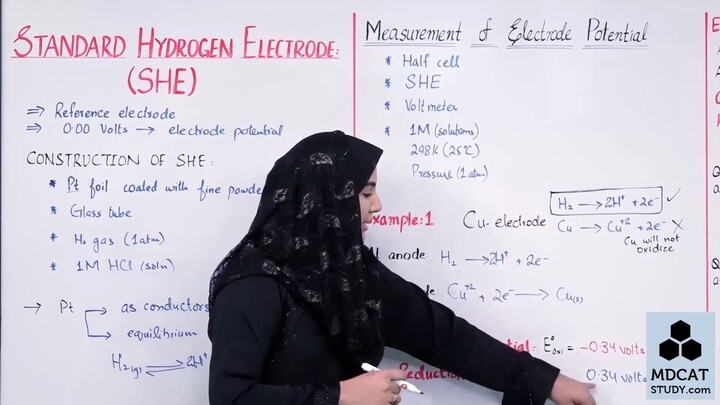 STANDARD HYDROGEN ELECTRODE:
(SHE)
⇒ Reference electrode
⇒ 0.00 Volts → electrode potential
CONSTRUCTION OF SHE:
* Pt foil coated with fine powde
* Glass tube
* H₂ gas (1atm)
* 1M HCl (soln)
→ Pt → as conductors
→ equilibrium
H₂(g) ⇌ 2H⁺
Measurement of Electrode Potential
* Half cell
* SHE
* Voltmeter
* 1M (solutions)
298K (25°C)
Pressure (1atm)
xample:1 Cu-electrode
H₂ → 2H⁺ + 2e⁻ ✓
Cu → Cu⁺² + 2e⁻ ✗
Cu will not
oxidize
anode: H₂ → 2H⁺ + 2e⁻
de: Cu⁺² + 2e⁻ → Cu(s)
tial: E°oxi = -0.34 volts
Reduction 0.34 volts
MDCAT
STUDY.com